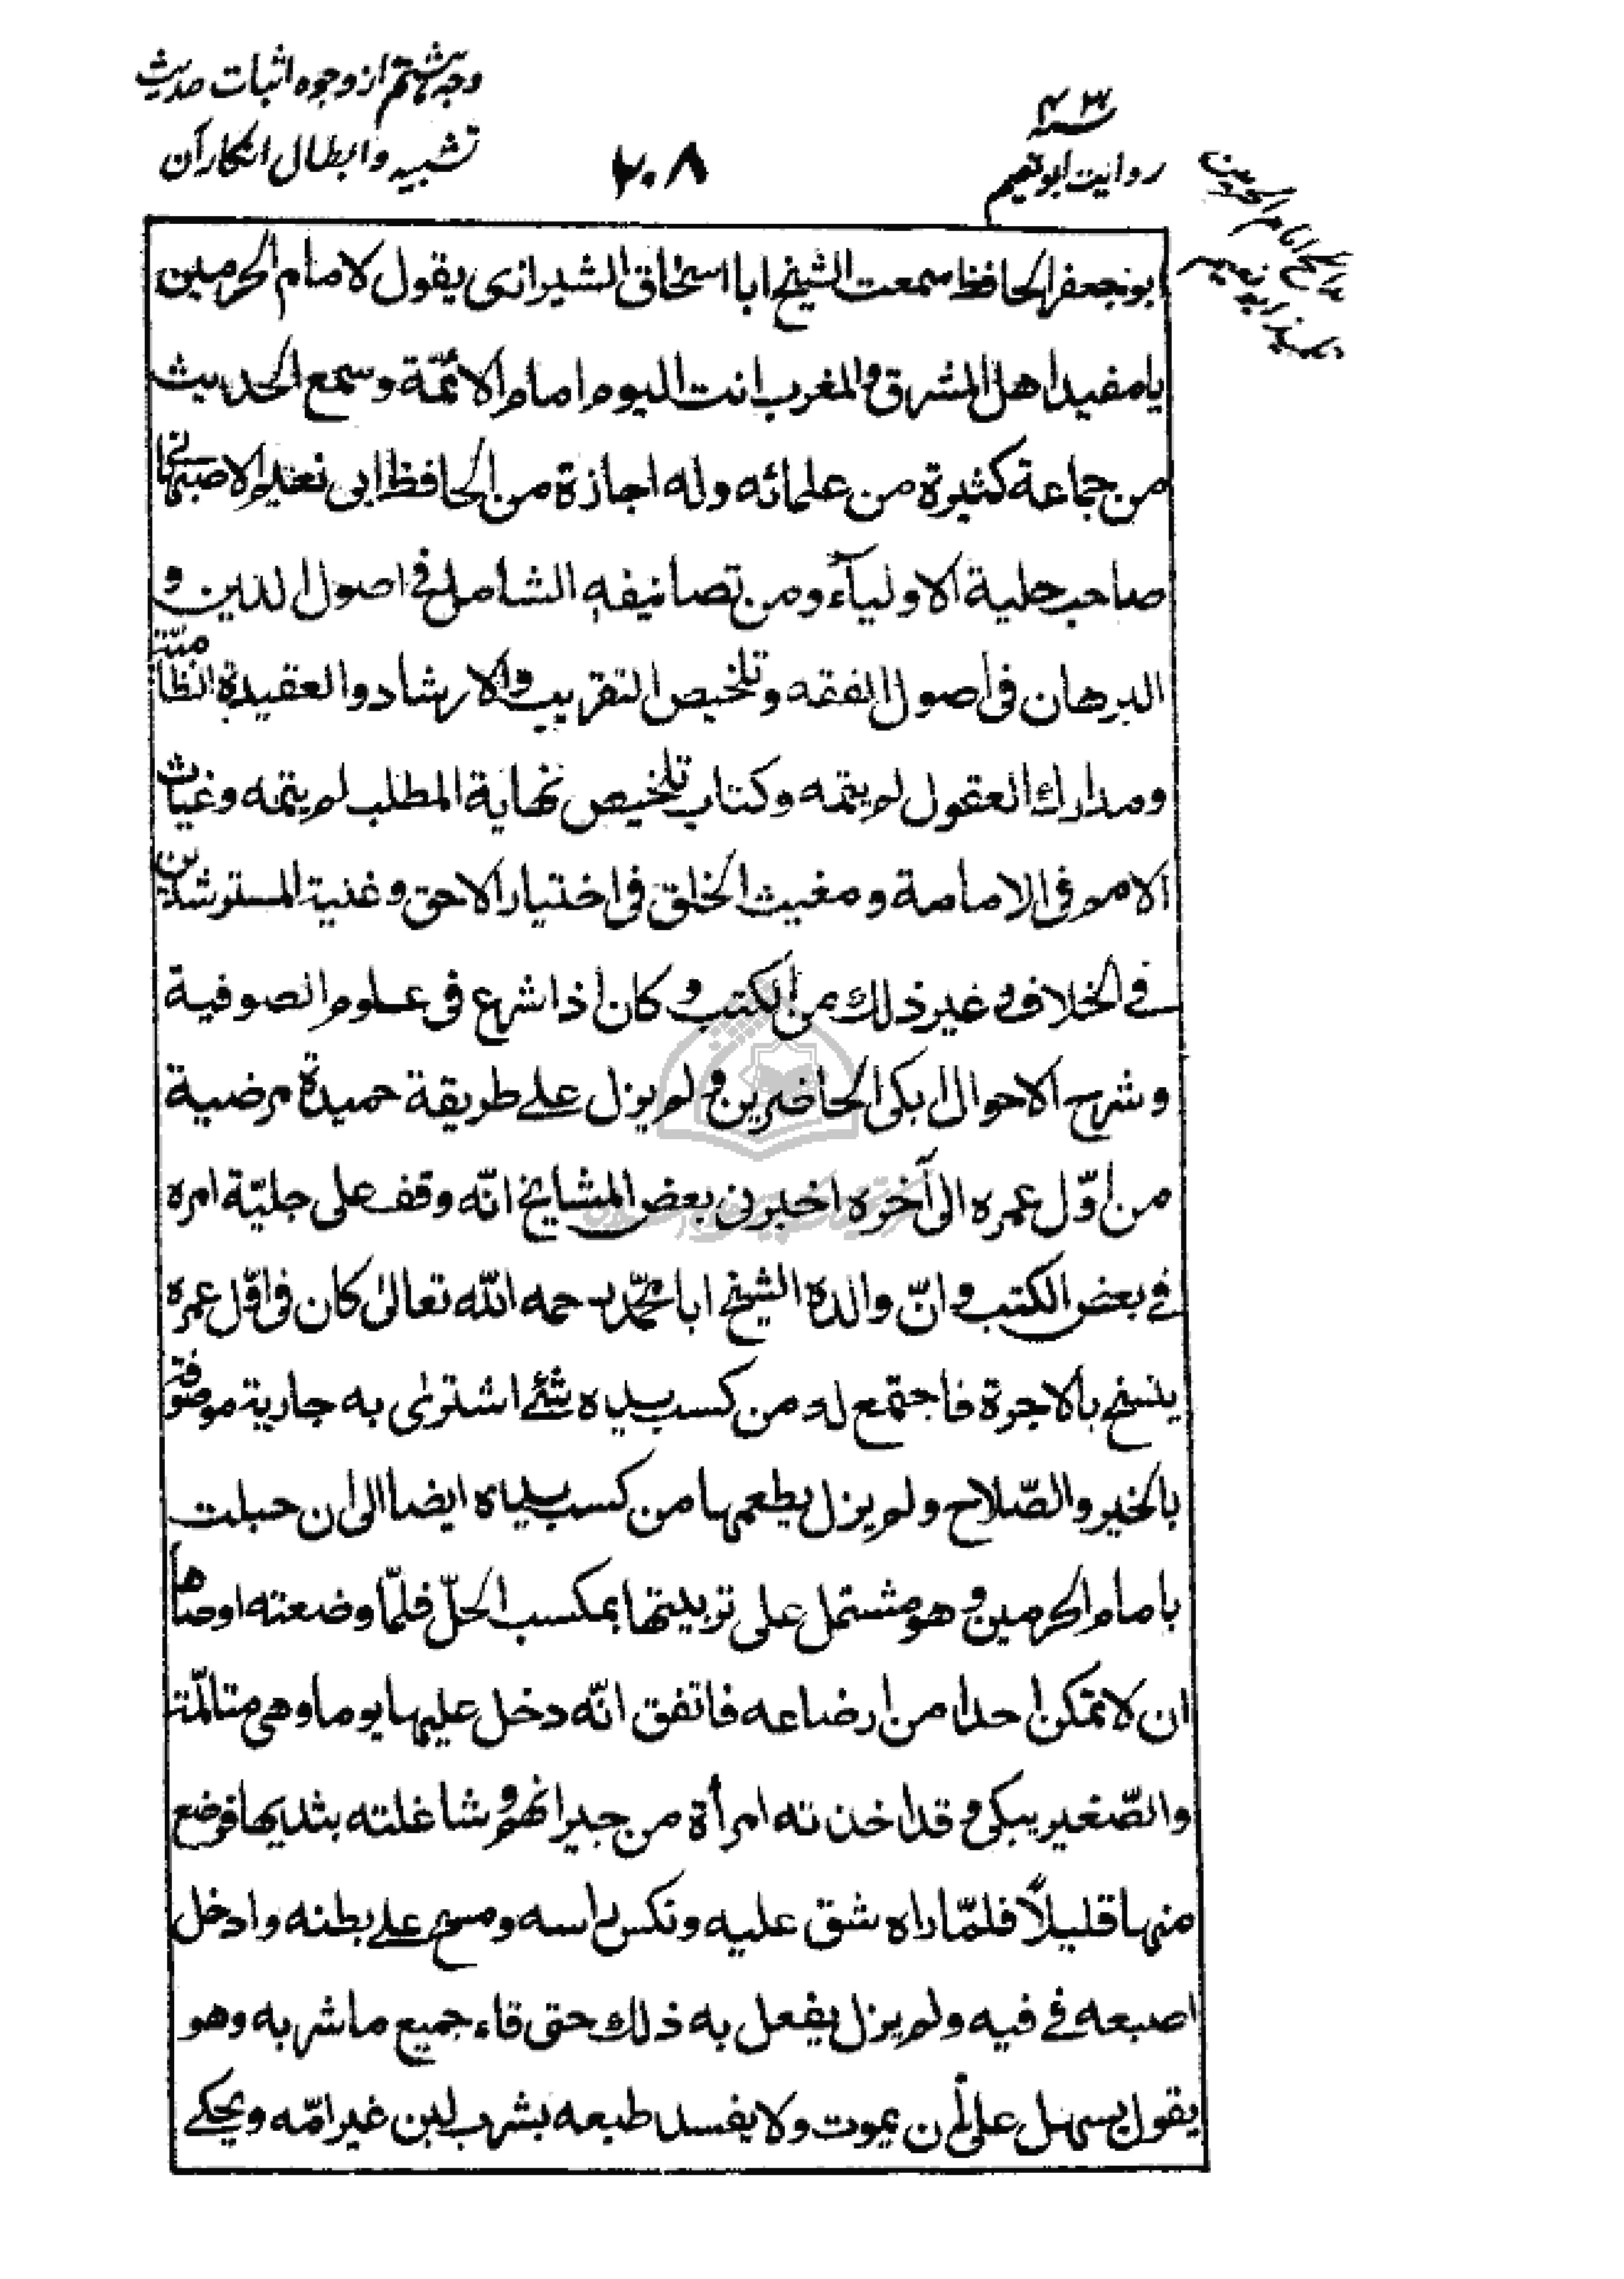 وجه هشتم از وجوه اثبات حدیث
تشبیه و ابطال انکار آن
۲۰۸
۴۳
روایت ابو نعیم
امام الحرمین
ابو نعیم
ابو جعفر الحافظ سمعت الشیخ ابا اسحٰاق الشیرازی یقول لامام الحرمین
یا مفید اهل المشرق و المغرب انت الیوم امام الائمّة و سمع الحدیث
من جماعة کثیرة من علمائه وله اجازة من الحافظ ابی نعیم الاصبهانی
صاحب حلیة الاولیآء ومن تصانیفه الشامل فی اصول الدین و
البرهان فی اصول الفقه و تلخیص التقریب و الارشاد و العقیدة النظامیّة
ومدارك العقول لم یتمه وکتاب تلخیص نهایة المطلب لم یتمه وغیاث
الامم فی الامامة و مغیث الخلق فی اختیار الاحق وغنیة المسترشدین
فی الخلاف و غیر ذلك من الکتب و کان اذا شرع فی علوم الصوفیة
و شرح الاحوال ابکی الحاضرین و لم یزل علی طریقة حمیدة مرضیة
من اوّل عمره الی آخره اخبرنی بعض المشایخ انّه وقف علی جلیّة امره
فی بعض الکتب و انّ والده الشیخ ابا محمّد رحمه اللّه تعالیٰ کان فی اوّل عمره
ینسخ بالاجرة فاجتمع له من کسب یده شئ اشتریٰ به جاریة موصوفة
بالخیر والصّلاح و لم یزل یطعمها من کسب یده ایضا الی ان حبلت
بامام الحرمین و هو مشتمل علی تربیتها بمکسب الحلّ فلمّا وضعته اوصاها
ان لا تمکن احدا من ارضاعه فاتفق انّه دخل علیها یوما وهی متالّمة
والصّغیر یبکی و قد اخذته امرأة من جیرانهم و شاغلته بثدیها فرضع
منها قلیلاً فلمّا راه شق علیه و نکس راسه و مسح علی بطنه و ادخل
اصبعه فی فیه و لم یزل یفعل به ذلك حتی قاء جمیع ما شربه وهو
یقول یسهل علی ان یموت و لا یفسد طبعه بشرب لبن غیر امّه و یحکی